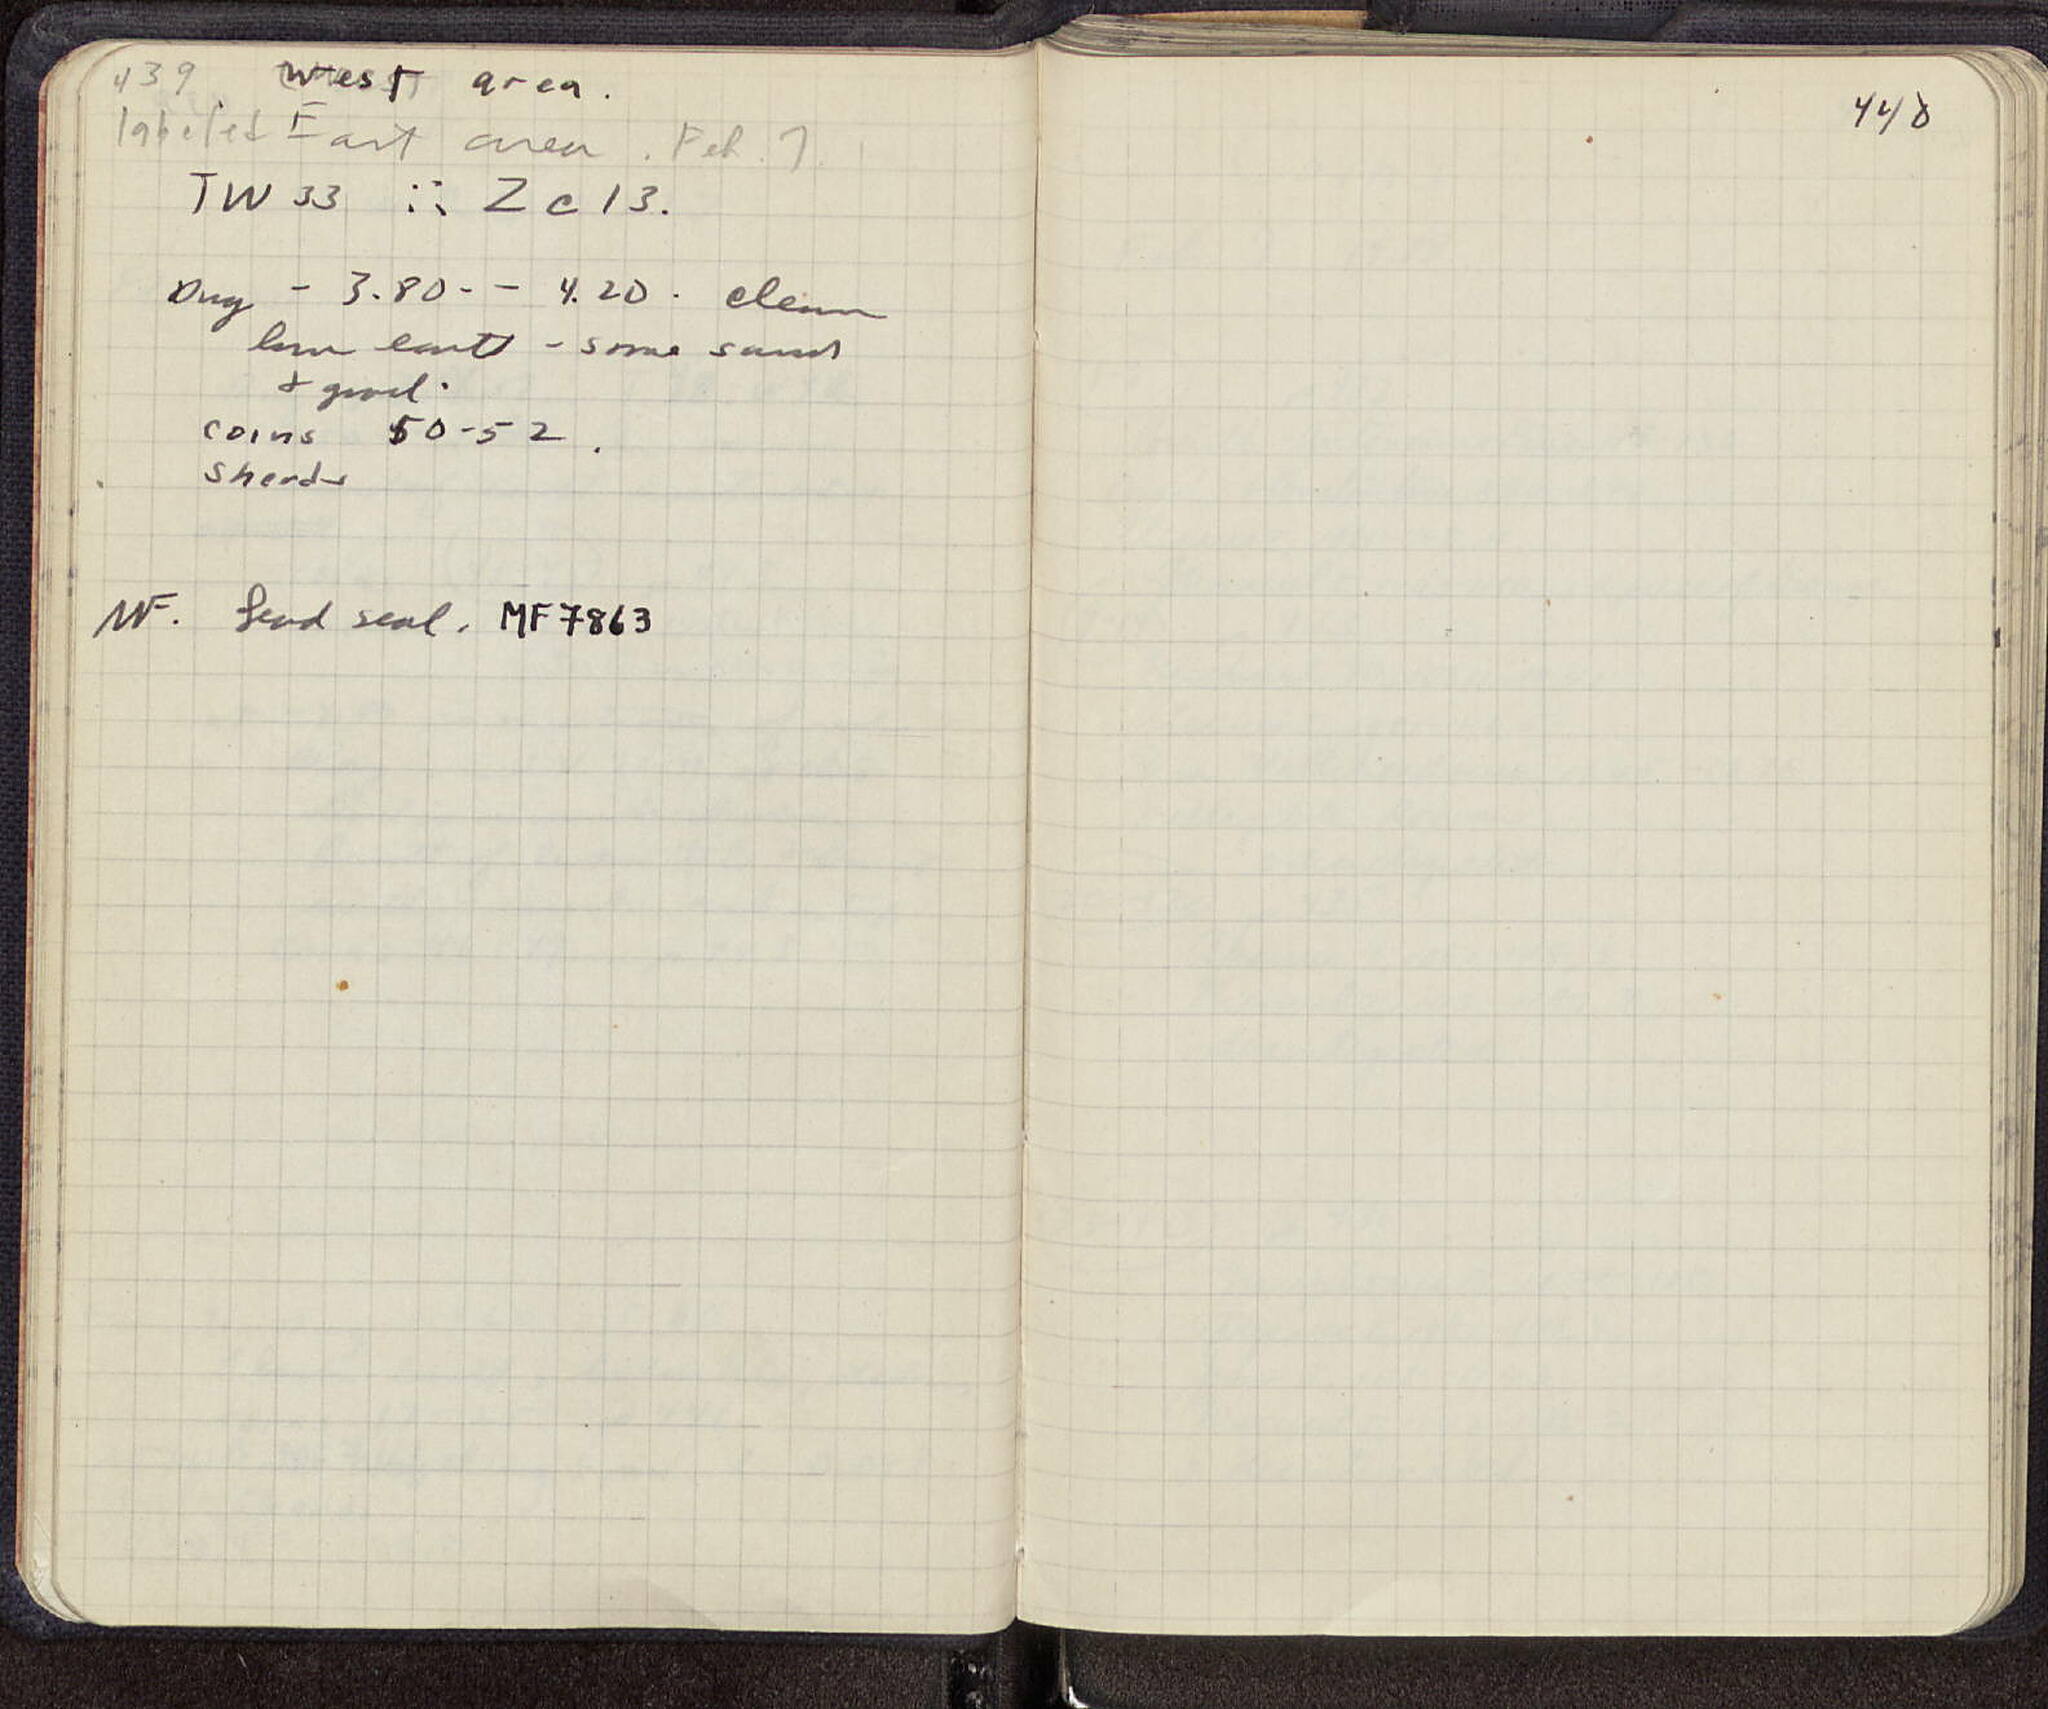 439 West area.
labeled East area. Feb. 7
TW 33 ∷ Z c 13.
Dug - 3.80 - - 4.20. clean
brn earth - some sand
& gravel.
coins 50-52.
sherds
MF. Lead seal. MF 7863
440